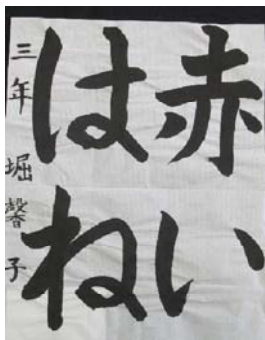 赤い
はね
三年 堀馨子